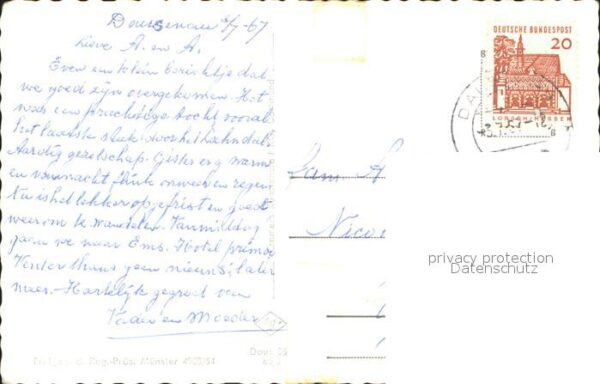 Dausenau 2/7-67
Lieve A. en A.
Even een klein berichtje dat
we goed zijn overgekomen. Het
was een prachtige tocht vooral
het laatste stuk door het Lahndal.
Aardig gezelschap. Gister erg warm
en vannacht flink onweer en regen
nu is het lekker opgefrist en goed
weer om te wandelen. Vanmiddag
gaan we naar Ems. Hotel prima
Verder thans geen nieuws, later
meer. Hartelijk gegroet van
Vader en Moeder
Fam. A
Nico
DEUTSCHE BUNDESPOST
20
LORSCH/HESSEN
privacy protection
Datenschutz
Reg.-Präs. Münster